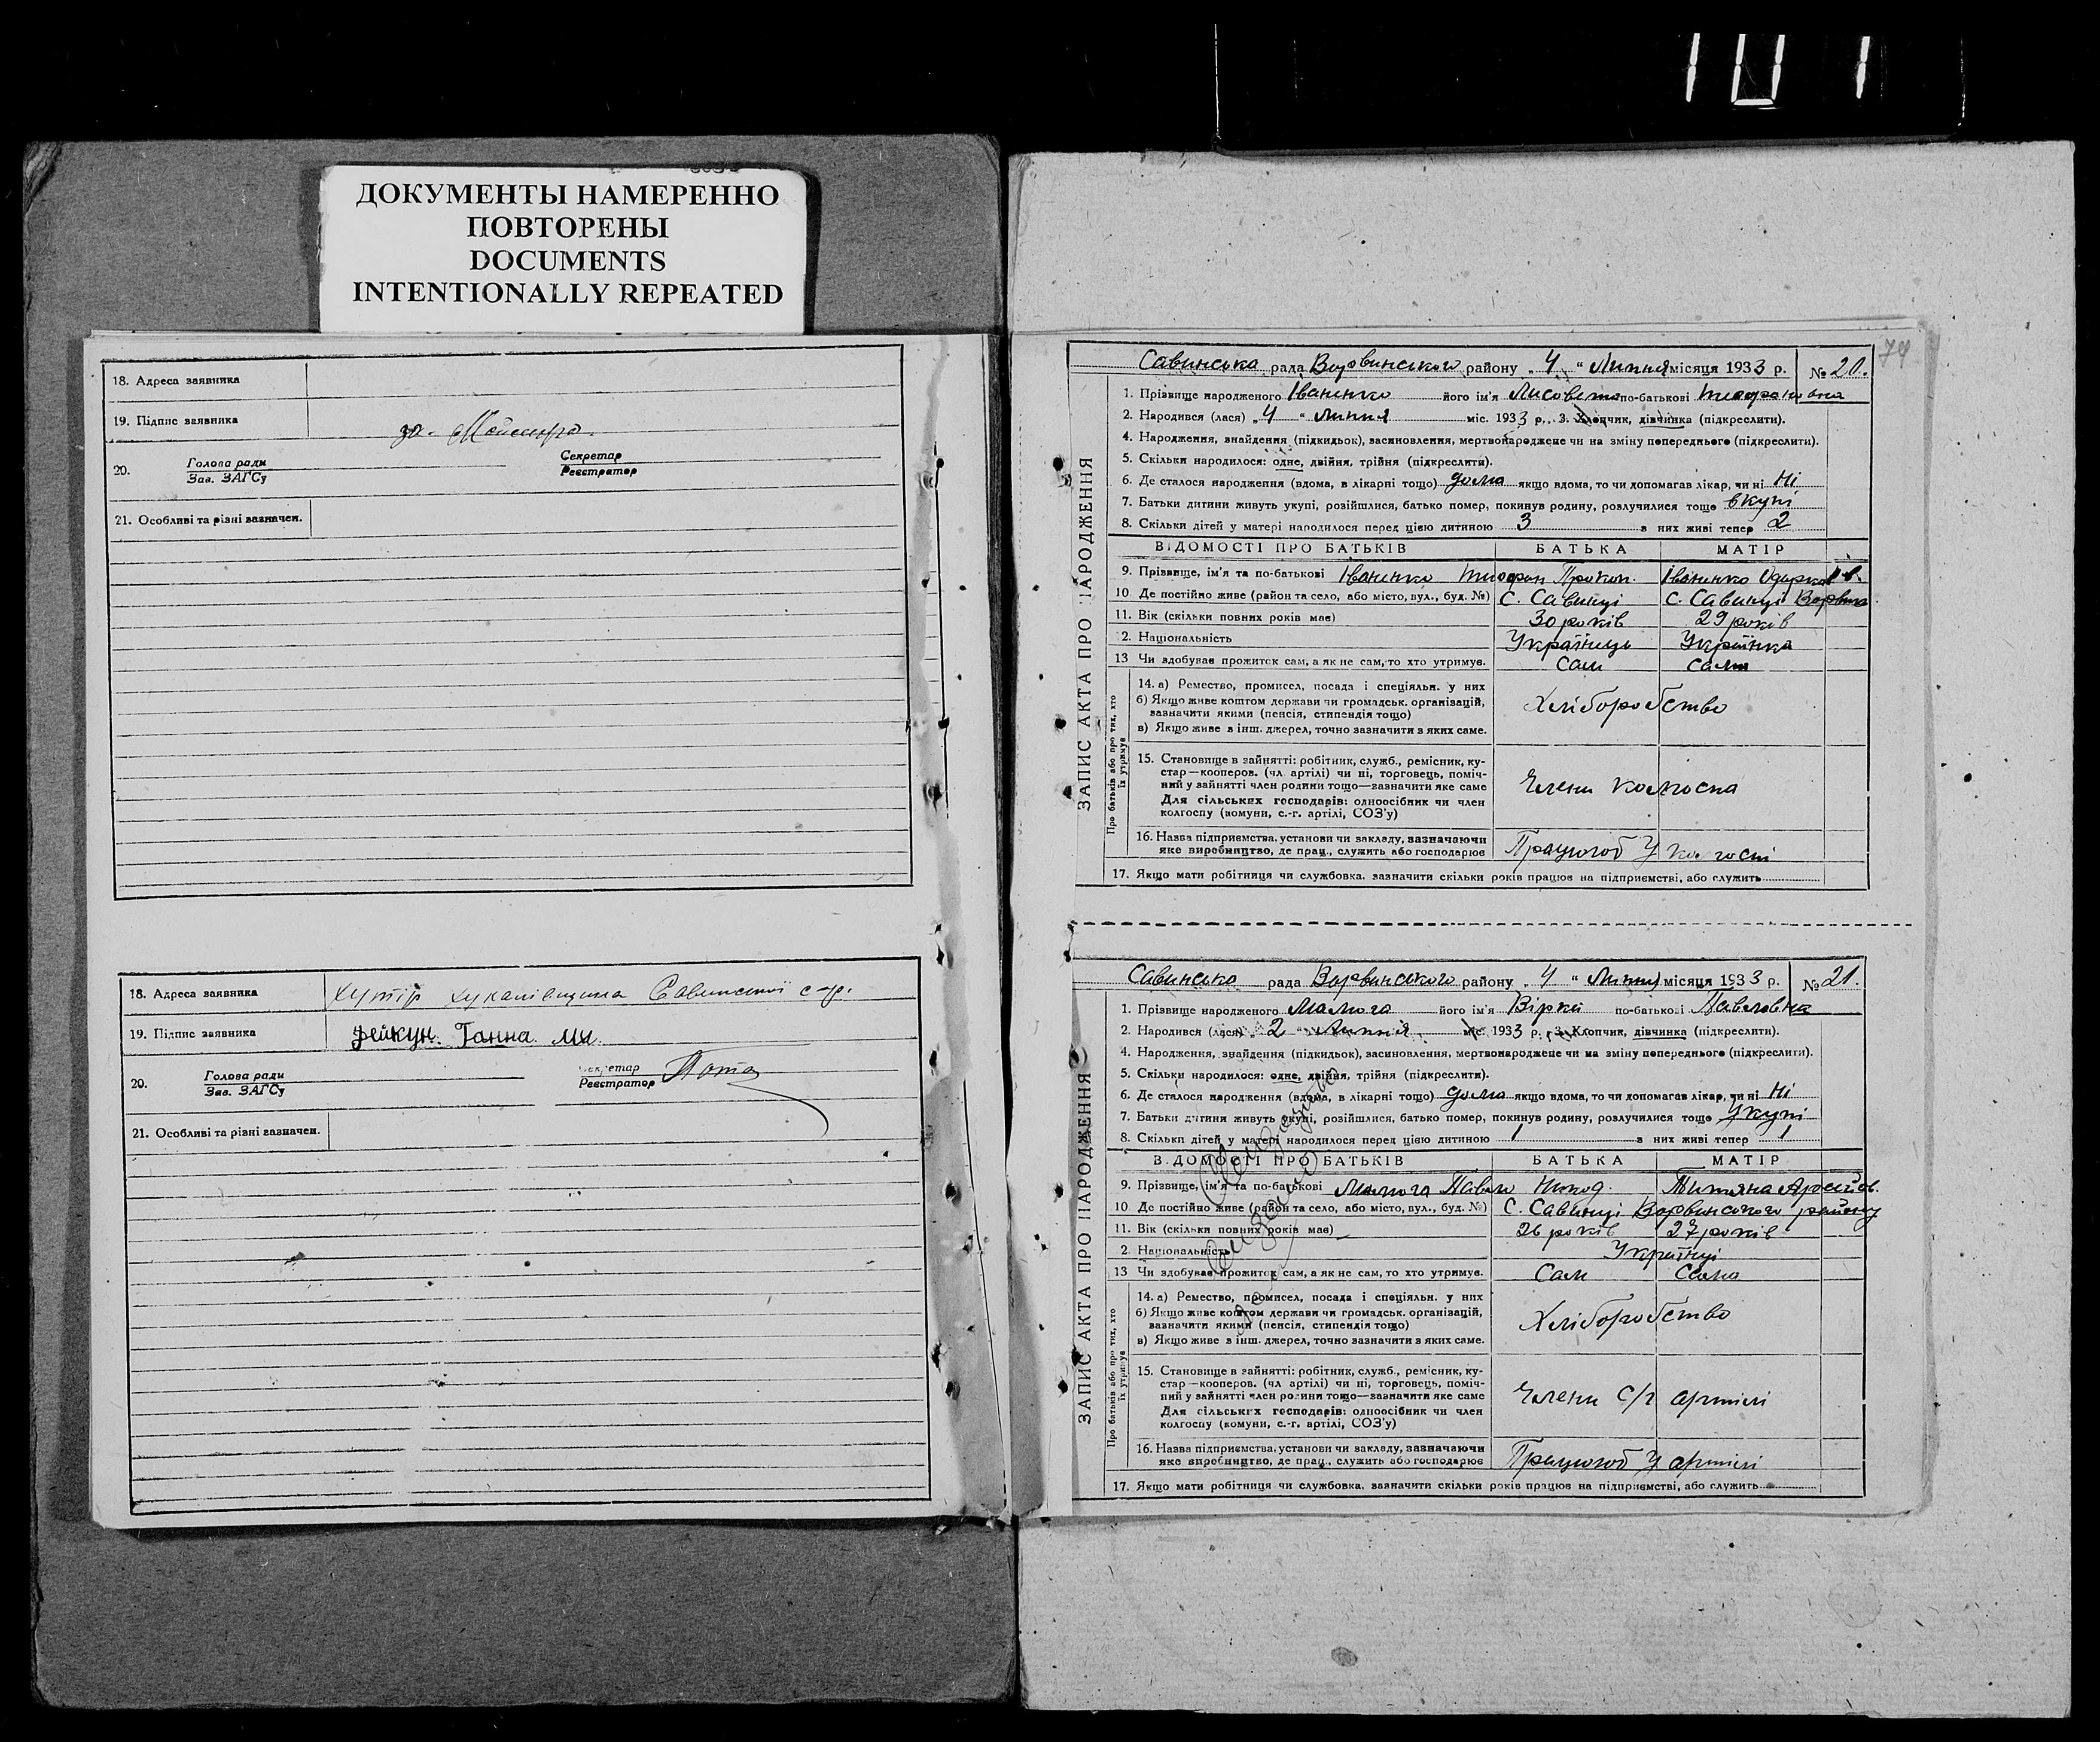 101
ДОКУМЕНТЫ НАМЕРЕННО
ПОВТОРЕНЫ
DOCUMENTS
INTENTIONALLY REPEATED
18. Адреса заявника
19. Підпис заявника за
20. Голова ради Секретар
Зав. ЗАГСу Реєстратор
21. Особливі та різні зазначен.
18. Адреса заявника хутір Савинської с-р.
19. Підпис заявника Рейкун. Ганна. Ми.
20. Голова ради Секретар
Зав. ЗАГСу Реєстратор
21. Особливі та різні зазначен.
74
ЗАПИС АКТА ПРО НАРОДЖЕННЯ
Савинська рада Варвинського району „ 4 “ Липня місяця 1933 р. № 20.
1. Прізвище народженого Іваненко його ім'я Лисовета по-батькові
2. Народився (лася) „ 4 “ липня міс. 1933 р. 3. Хлопчик, дівчинка (підкреслити).
4. Народження, знайдення (підкидьок), засиновлення, мертвонароджене чи на зміну попереднього (підкреслити).
5. Скільки народилося: одне, двійня, трійня (підкреслити).
6. Де сталося народження (вдома, в лікарні тощо) дома якщо вдома, то чи допомагав лікар, чи ні Ні
7. Батьки дитини живуть укупі, розійшлися, батько помер, покинув родину, розлучилися тоще вкупі
8. Скільки дітей у матері народилося перед цією дитиною 3 з них живі тепер 2
ВІДОМОСТІ ПРО БАТЬКІВ БАТЬКА МАТІР
9. Прізвище, ім'я та по-батькові Іваненко Прокоп. Іваненко Одарка
10 Де постійно живе (район та село, або місто, вул., буд. №) С. Савинці С. Савинці Варвин
11. Вік (скільки повних років має) 30 років 29 років
2. Національність Українець Українка
13 Чи здобуває прожиток сам, а як не сам, то хто утримує. Сам сама
Про батьків або про тих, хто їх утримує
14. а) Ремество, промисел, посада і спеціяльн. у них
б) Якщо живе коштом держави чи громадськ. організацій,
зазначити якими (пенсія, стипендія тощо)
в) Якщо живе з інш. джерел, точно зазначити з яких саме.
Хліборобство
15. Становище в зайнятті: робітник, служб., ремісник, ку-
стар—кооперов. (чл. артілі) чи ні, торговець, поміч-
ний у зайнятті член родини тощо—зазначити яке саме
Для сільських господарів: одноосібник чи член
колгоспу (комуни, с.-г. артілі, СОЗ'у)
Члени колгоспа
16. Назва підприємства, установи чи закладу, зазначаючи
яке виробництво, де прац., служить або господарює
Працюють У колгоспі
17. Якщо мати робітниця чи службовка, зазначити скільки років працює на підприємстві, або служить
ЗАПИС АКТА ПРО НАРОДЖЕННЯ
Савинсько рада Варвинського району „ 4 “ Липня місяця 1933 р. № 21.
1. Прізвище народженого Малюга його ім'я Вірка по-батькові Павеловна
2. Народився (лася) 2 “ Липня міс. 1933 р. 3. Хлопчик, дівчинка (підкреслити).
4. Народження, знайдення (підкидьок), засиновлення, мертвонароджене чи на зміну попереднього (підкреслити).
5. Скільки народилося: одне, двійня, трійня (підкреслити).
6. Де сталося народження (вдома, в лікарні тощо) дома якщо вдома, то чи допомагав лікар, чи ні Ні
7. Батьки дитини живуть укупі, розійшлися, батько помер, покинув родину, розлучилися тоще Укупі
8. Скільки дітей у матері народилося перед цією дитиною 1 з них живі тепер 1
ВІДОМОСТІ ПРО БАТЬКІВ БАТЬКА МАТІР
9. Прізвище, ім'я та по-батькові Малюга Павло Никод. Титяна
10 Де постійно живе (район та село, або місто, вул., буд. №) С. Савинці Варвинського району
11. Вік (скільки повних років має) 26 років 27 років
2. Національність Українці
13 Чи здобуває прожиток сам, а як не сам, то хто утримує. Сам Сама
Про батьків або про тих, хто їх утримує
14. а) Ремество, промисел, посада і спеціяльн. у них
б) Якщо живе коштом держави чи громадськ. організацій,
зазначити якими (пенсія, стипендія тощо)
в) Якщо живе з інш. джерел, точно зазначити з яких саме.
Хліборобство
15. Становище в зайнятті: робітник, служб., ремісник, ку-
стар—кооперов. (чл артілі) чи ні, торговець, поміч-
ний у зайнятті член родини тощо—зазначити яке саме
Для сільських господарів: одноосібник чи член
колгоспу (комуни, с.-г. артілі, СОЗ'у)
Члени С/г артілі
16. Назва підприємства, установи чи закладу, зазначаючи
яке виробництво, де прац., служить або господарює
Працюють У артілі
17. Якщо мати робітниця чи службовка, зазначити скільки років працює на підприємстві, або служить